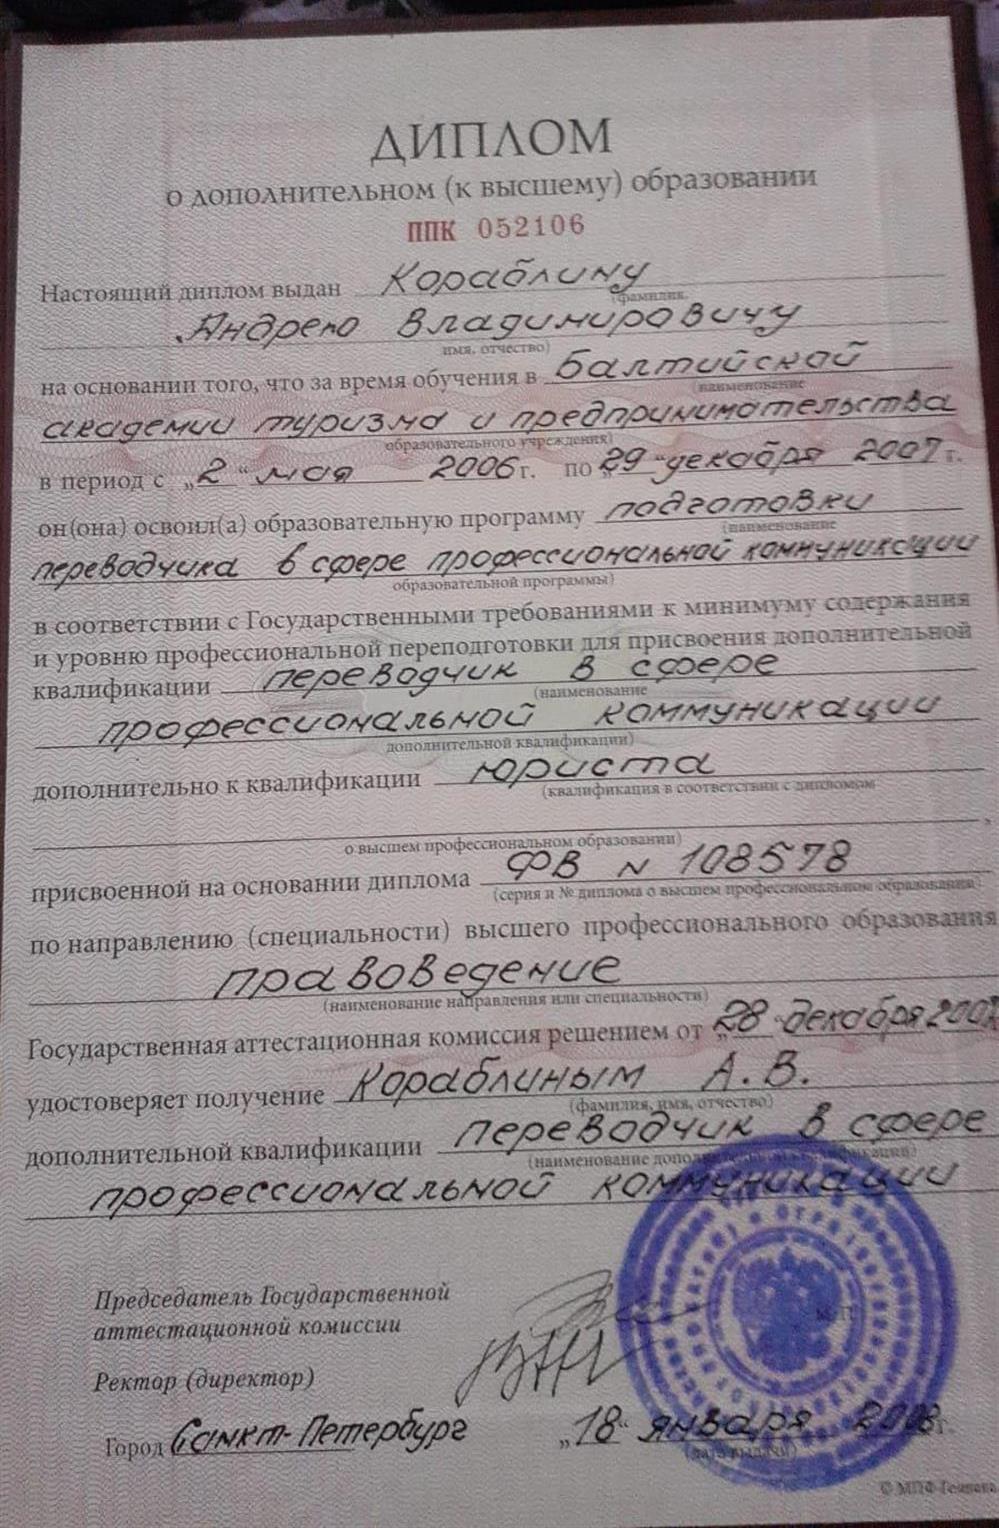 ДИПЛОМ
о дополнительном (к высшему) образовании
ППК 052106
Настоящий диплом выдан Кораблину
(фамилия,
Андрею Владимировичу
имя, отчество)
на основании того, что за время обучения в Балтийской
(наименование
академии туризма и предпринимательства
образовательного учреждения)
в период с „2“ мая 2006 г. по „29“ декабря 2007 г.
он(она) освоил(а) образовательную программу подготовки
(наименование
переводчика в сфере профессиональной коммуникации
образовательной программы)
в соответствии с Государственными требованиями к минимуму содержания
и уровню профессиональной переподготовки для присвоения дополнительной
квалификации переводчик в сфере
(наименование
профессиональной коммуникации
дополнительной квалификации)
дополнительно к квалификации юриста
(квалификация в соответствии с дипломом
,
о высшем профессиональном образовании)
присвоенной на основании диплома ФВ N 108578
(серия и № диплома о высшем профессиональном образовании)
по направлению (специальности) высшего профессионального образования
правоведение
(наименование направления или специальности)
Государственная аттестационная комиссия решением от „28“ декабря 2007
удостоверяет получение Кораблиным А. В.
(фамилия, имя, отчество)
дополнительной квалификации переводчик в сфере
(наименование дополнительной квалификации)
профессиональной коммуникации
Председатель Государственной
аттестационной комиссии
М.П.
Ректор (директор)
Город Санкт-Петербург „18“ января 2008 г.
(дата выдачи)
© МПФ Гознака